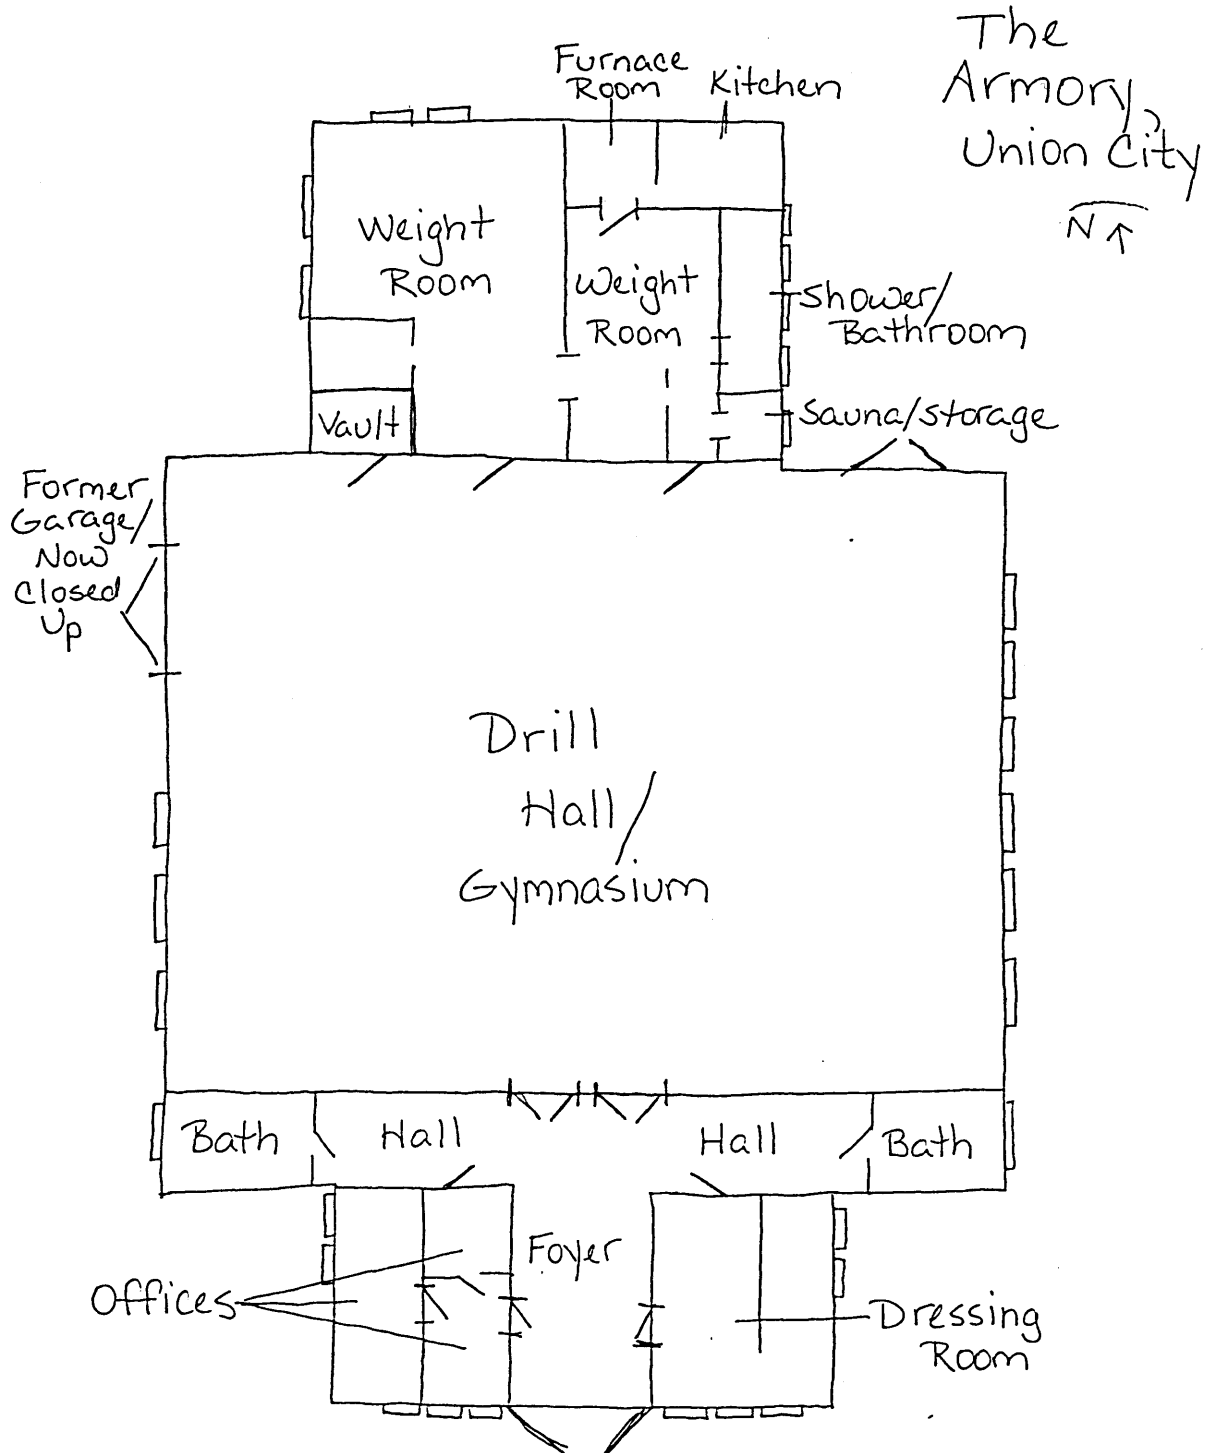 The
Armory,
Union City
N ↑
Furnace
Room
Kitchen
Weight
Room
Weight
Room
Shower/
Bathroom
Vault
Sauna/storage
Former
Garage/
Now
Closed
Up
Drill
Hall/
Gymnasium
Bath
Hall
Hall
Bath
Foyer
Offices
Dressing
Room